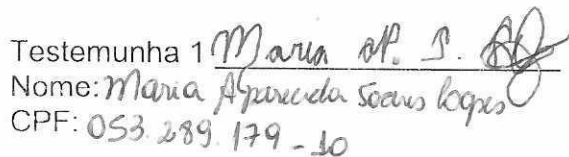 Testemunha 1 Maria AP. S.
Nome: Maria Aparecida Soares Lopes
CPF: 053.289.179-10